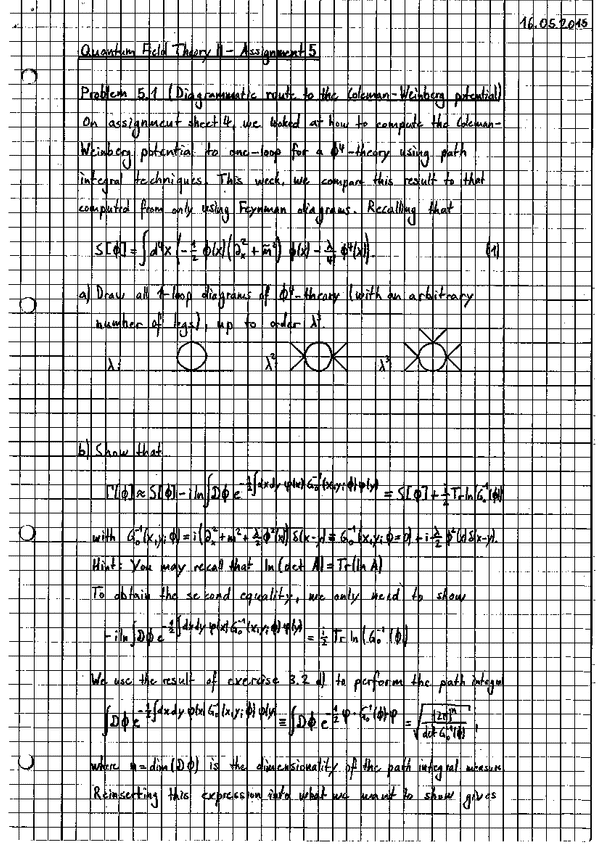 16.05.2015
Quantum Field Theory II – Assignment 5
Problem 5.1 (Diagrammatic route to the Coleman-Weinberg potential)
On assignment sheet 4, we looked at how to compute the Coleman-
Weinberg potential to one-loop for a ϕ⁴-theory using path
integral techniques. This week, we compare this result to that
computed from only using Feynman diagrams. Recalling that
S[ϕ] = ∫d⁴x (-1/2 ϕ(x)(∂ₓ² + m²) ϕ(x) - λ/4! ϕ⁴(x)). (1)
a) Draw all 1-loop diagrams of ϕ⁴-theory (with an arbitrary
number of legs), up to order λ³.
λ: λ²: λ³:
b) Show that
Γ[ϕ] ≈ S[ϕ] - i ln ∫Dϕ e^{-1/2 ∫dxdy φ(x) G₀⁻¹(x,y;ϕ) φ(y)} = S[ϕ] + i/2 Tr ln G₀⁻¹(ϕ)
with G₀⁻¹(x,y;ϕ) = i(∂ₓ² + m² + λ/2 ϕ²(x)) δ(x-y) ≡ G₀⁻¹(x,y;ϕ=0) + i λ/2 ϕ²(x) δ(x-y).
Hint: You may recal that ln(det A) = Tr(ln A)
To obtain the second equality, we only need to show
-i ln ∫Dϕ e^{-1/2 ∫dxdy φ(x) G₀⁻¹(x,y;ϕ) φ(y)} = i/2 Tr ln(G₀⁻¹(ϕ))
We use the result of exercise 3.2 d) to perform the path integral
∫Dϕ e^{-1/2 ∫dxdy φ(x) G₀⁻¹(x,y;ϕ) φ(y)} ≡ ∫Dϕ e^{-1/2 φ·G₀⁻¹(ϕ)·φ} = √((2π)ⁿ / det G₀⁻¹(ϕ)),
where n = dim(Dϕ) is the dimensionality of the path integral measure
Reinserting this expression into what we want to show gives